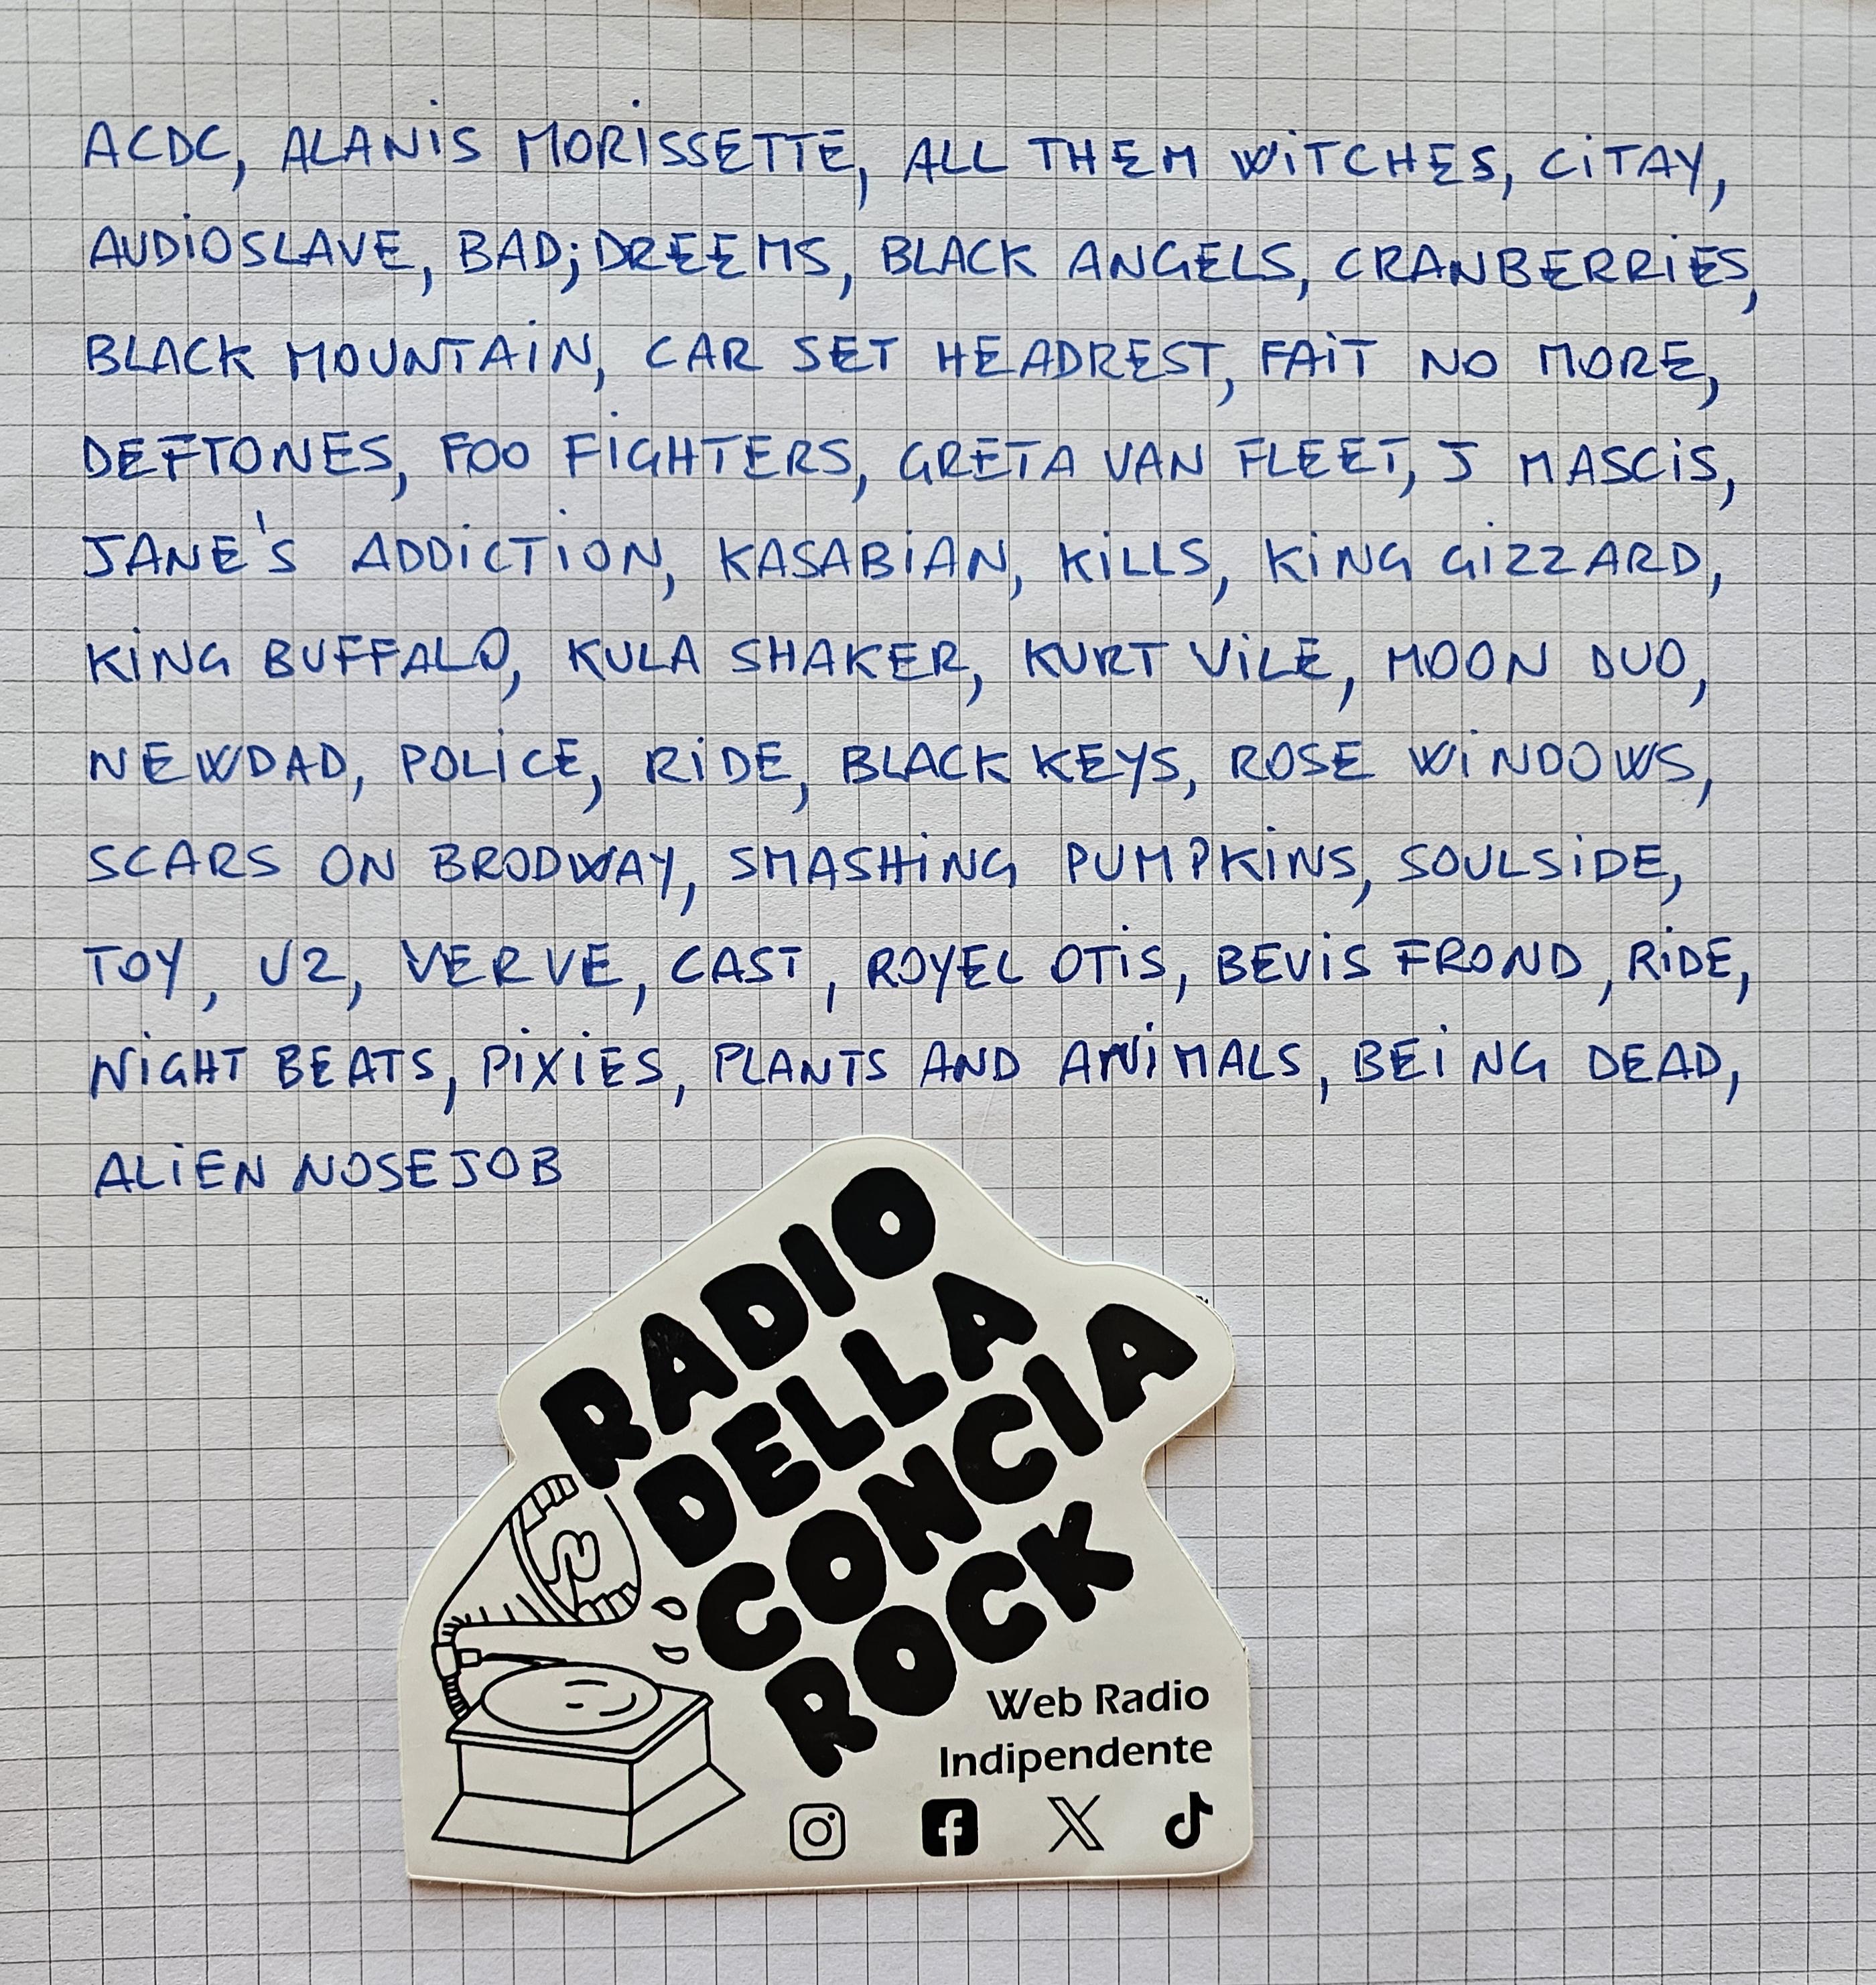 ACDC, ALANIS MORISSETTE, ALL THEM WITCHES, CITAY,
AUDIOSLAVE, BAD;DREEMS, BLACK ANGELS, CRANBERRIES,
BLACK MOUNTAIN, CAR SET HEADREST, FAIT NO MORE,
DEFTONES, FOO FIGHTERS, GRETA VAN FLEET, J MASCIS,
JANE'S ADDICTION, KASABIAN, KILLS, KING GIZZARD,
KING BUFFALO, KULA SHAKER, KURT VILE, MOON DUO,
NEWDAD, POLICE, RIDE, BLACK KEYS, ROSE WINDOWS,
SCARS ON BRODWAY, SMASHING PUMPKINS, SOULSIDE,
TOY, U2, VERVE, CAST, ROYEL OTIS, BEVIS FROND, RIDE,
NIGHT BEATS, PIXIES, PLANTS AND ANIMALS, BEING DEAD,
ALIEN NOSEJOB
RADIO
DELLA
CONCIA
ROCK
Web Radio
Indipendente